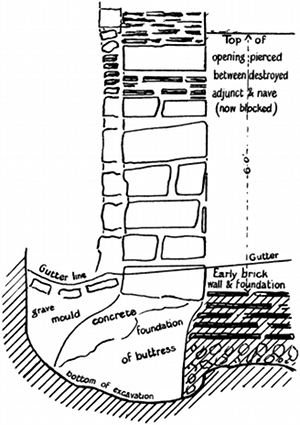 Top of
opening pierced
between destroyed
adjunct & nave
(now blocked)
6'0"
Gutter
Gutter line
Early brick
wall & foundation
grave
mould
concrete
foundation
of buttress
bottom of excavation